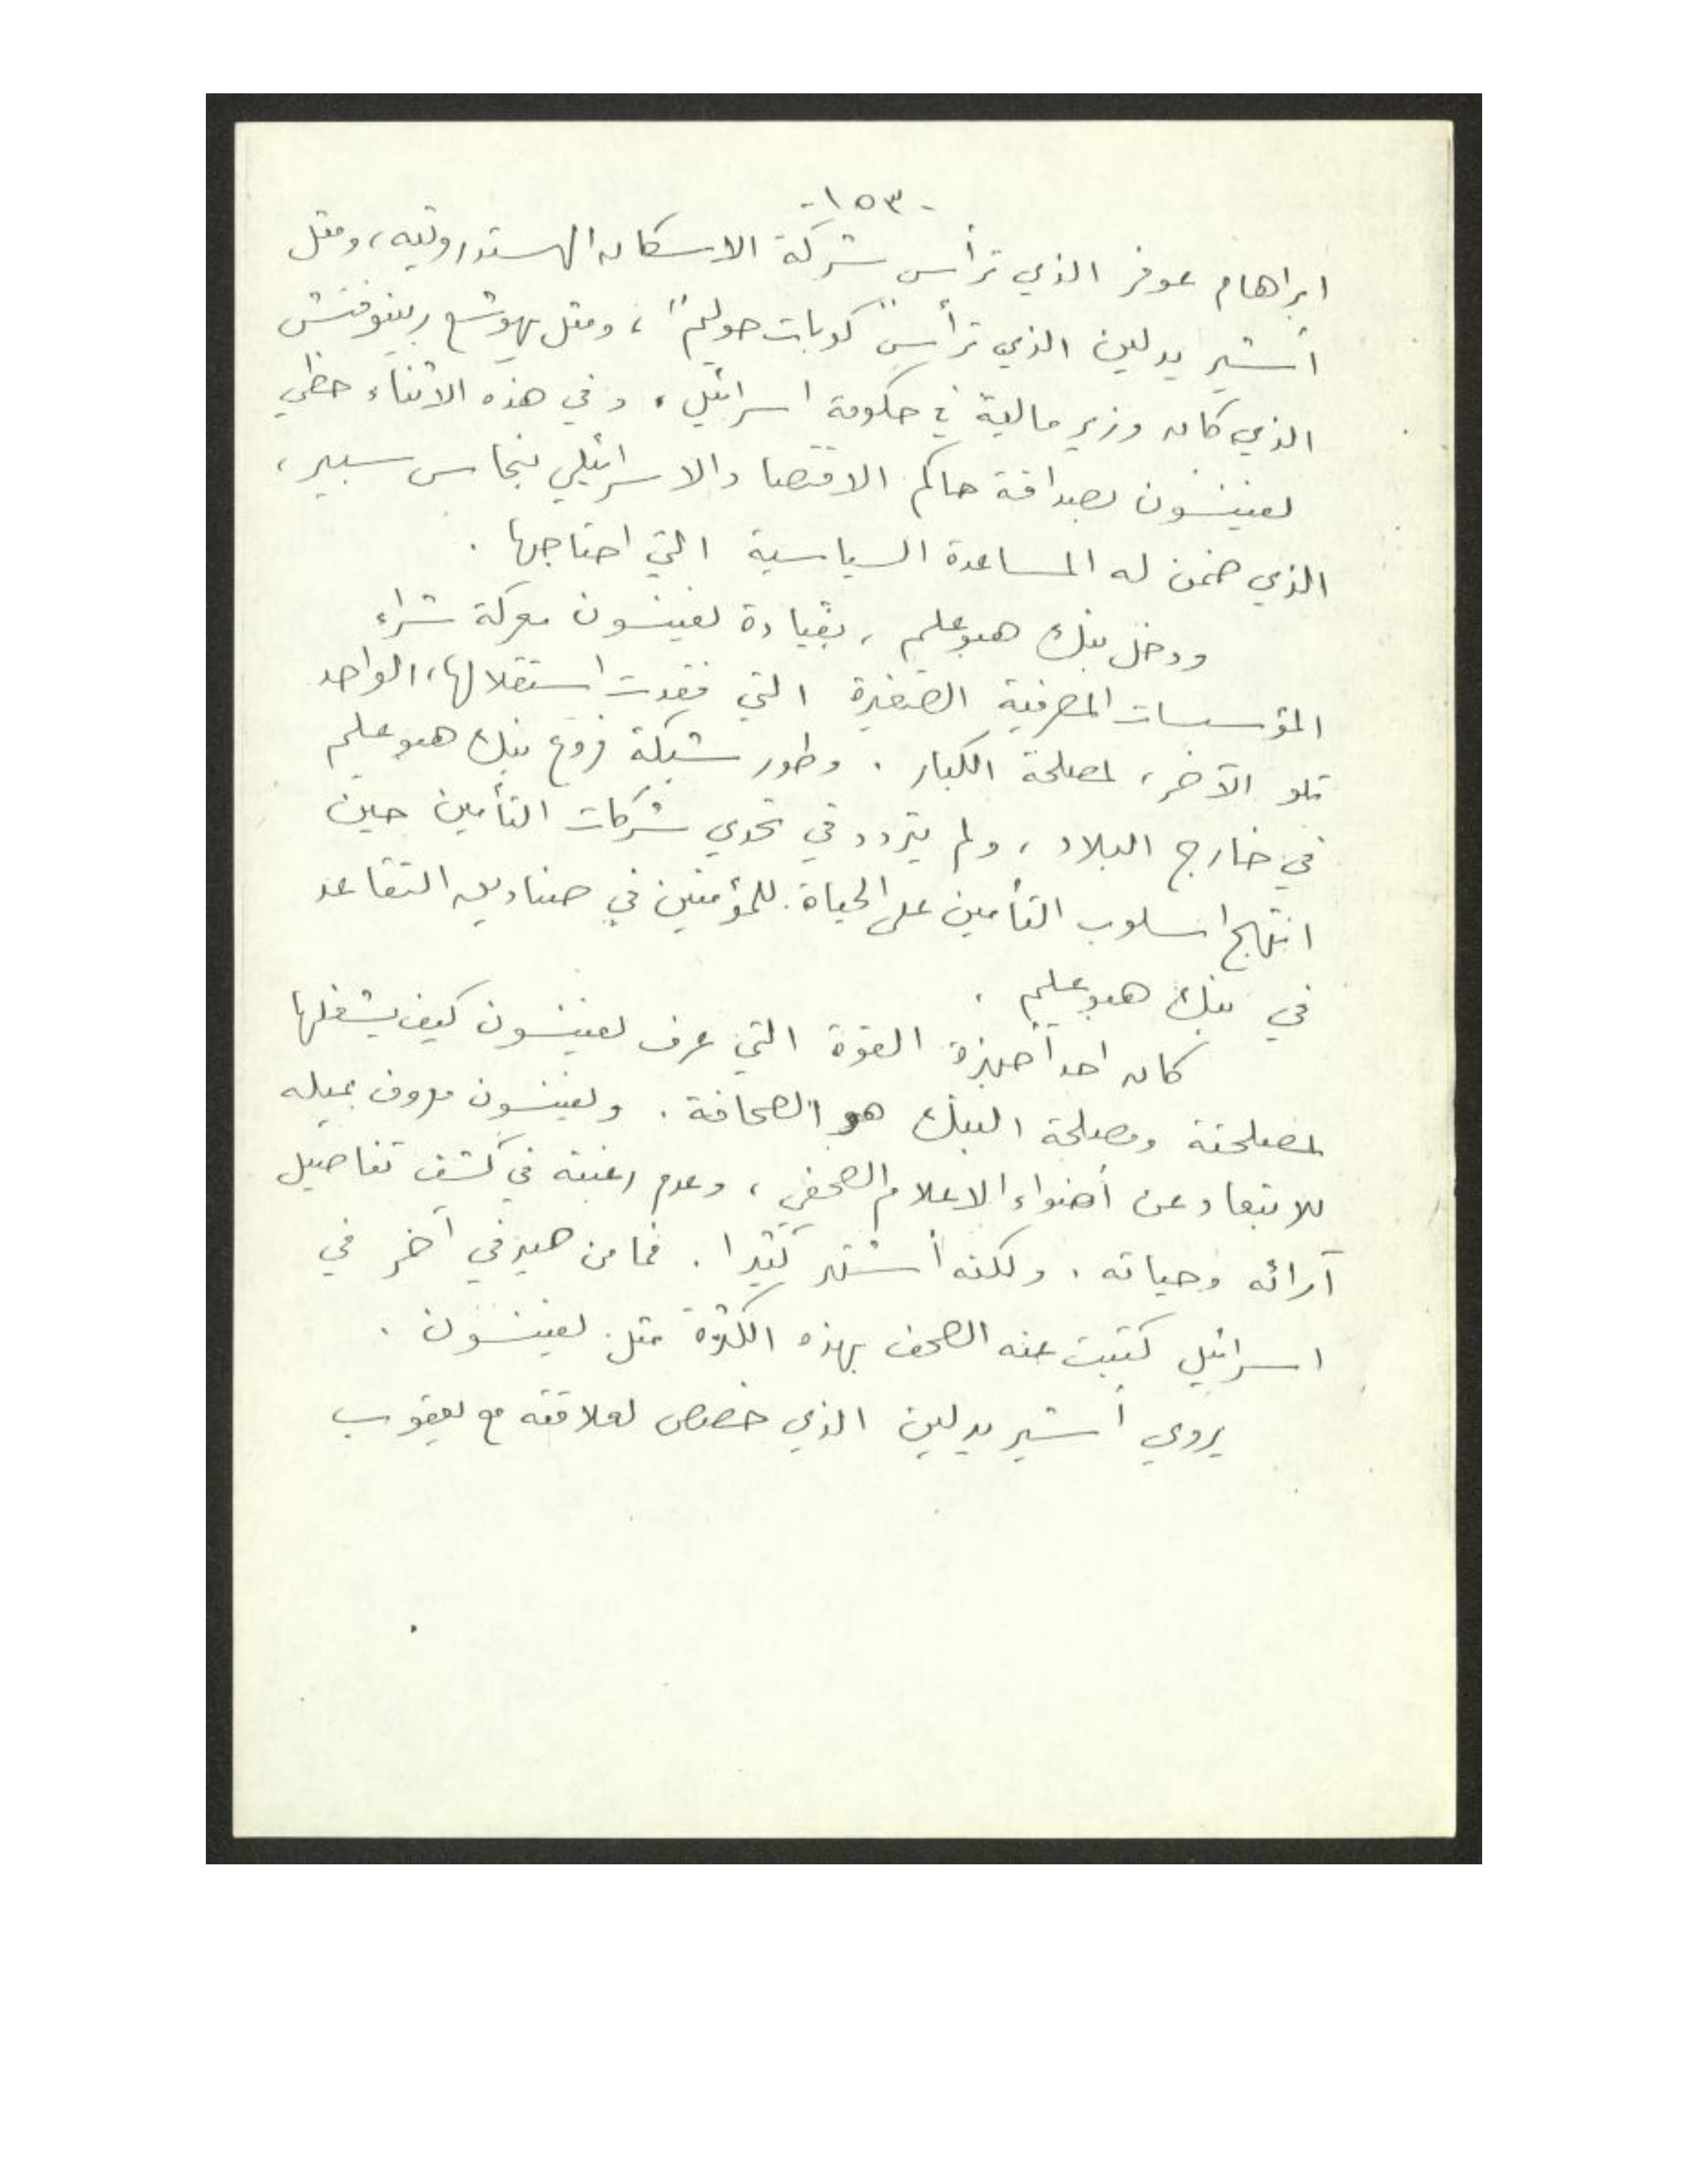 -١٥٣-
ابراهام عوفر الذي ترأس شركة الاسكان الهستدروتيه، ومثل
أشير يدلين الذي ترأس "كوبات حوليم"، ومثل يهوشع ربينوفتش
الذي كان وزير مالية في حكومة اسرائيل، وفي هذه الاثناء حظي
لفينسون بصداقة حاكم الاقتصاد الاسرائيلي بنحاس سبير،
الذي ضمن له المساعدة السياسية التي احتاجها.
ودخل بنك هبوعليم، بقيادة لفينسون معركة شراء
المؤسسات المصرفية الصغيرة التي فقدت استقلالها، الواحد
تلو الآخر، لمصلحة الكبار. وطور شبكة فروع بنك هبوعليم
في خارج البلاد، ولم يتردد في تحدي شركات التأمين حين
انتهج اسلوب التأمين على الحياة للمؤمنين في صناديق التقاعد
في بنك هبوعليم.
كان احد أجهزة القوة التي عرف لفينسون كيف يشغلها
لمصلحته ومصلحة البنك هو الصحافة. ولفينسون معروف بميله
للابتعاد عن أضواء الاعلام الصحفي، وعدم رغبته في كشف تفاصيل
آرائه وحياته. ولكنه أشتهر كثيرا. فما من صيرفي آخر في
اسرائيل كتبت عنه الصحف بهذه الكثرة مثل لفينسون.
يروي أشير يدلين الذي خصص لعلاقته مع يعقوب